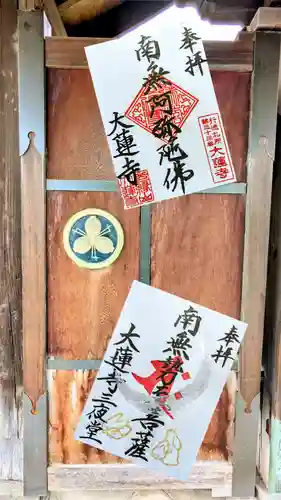 奉拝
南無阿弥陀佛
大蓮寺
大蓮寺
奉拝
南無勢至菩薩
大蓮寺三夜堂